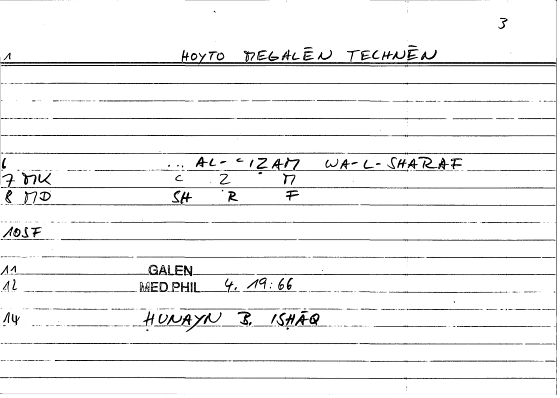 3
1 HOYTO MEGALĒN TECHNĒN
6 ... AL-ʿIẒAM WA-L-SHARAF
7 MK ʿ Ẓ M
8 MD SH R F
10SF
11 GALEN
12 MED PHIL 4. 19:66
14 ḤUNAYN B. ISḤĀQ